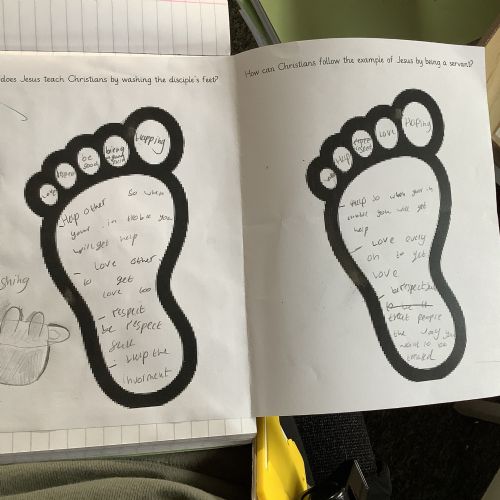 does Jesus teach Christians by washing the disciple's feet?
be
good
being
Help other so when
your in troble you
will get help
- Love other
to get
love too
- respect
be respect
- help the
shing
How can Christians follow the example of Jesus by being a servant?
Help
Love
Hoping
- Help so when your in
you will get
help
- Love every
on to get
Love
- be respect
treat people
the way you
want to be
treated